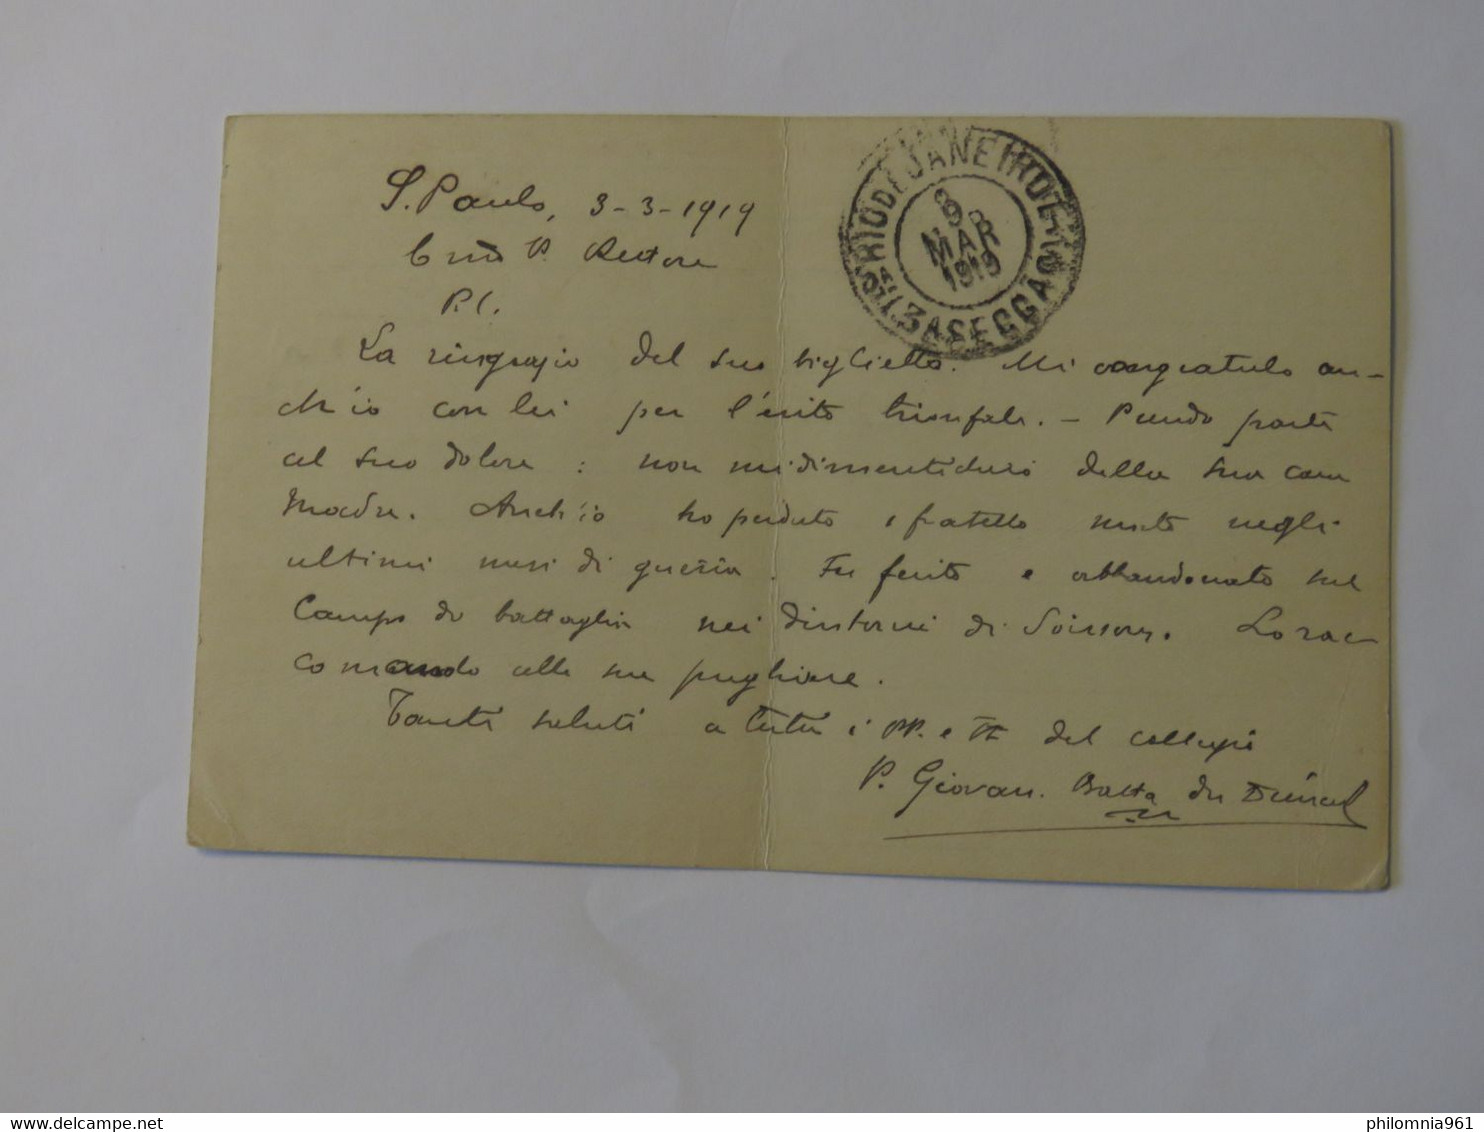 S. Paulo, 3-3-1919
P. Rettore
P.C.
La ringrazio del suo biglietto. Mi congratulo an-
ch'io con lei per l'esito trionfale. – Prendo parte
al suo dolore : non mi dimenticherò della sua cara
Madre. Anch'io ho perduto 1 fratello morto negli
ultimi mesi di guerra. Fu ferito e abbandonato sul
Campo di battaglia nei dintorni di Soissons. Lo rac-
comando alle sue preghiere.
Tanti saluti a tutti i PP. e FF. del collegio
P. Giovan. Batta du
RIO DE JANEIRO
9
MAR
1919
3A SECÇÃO
delcampe.net
philomnia961